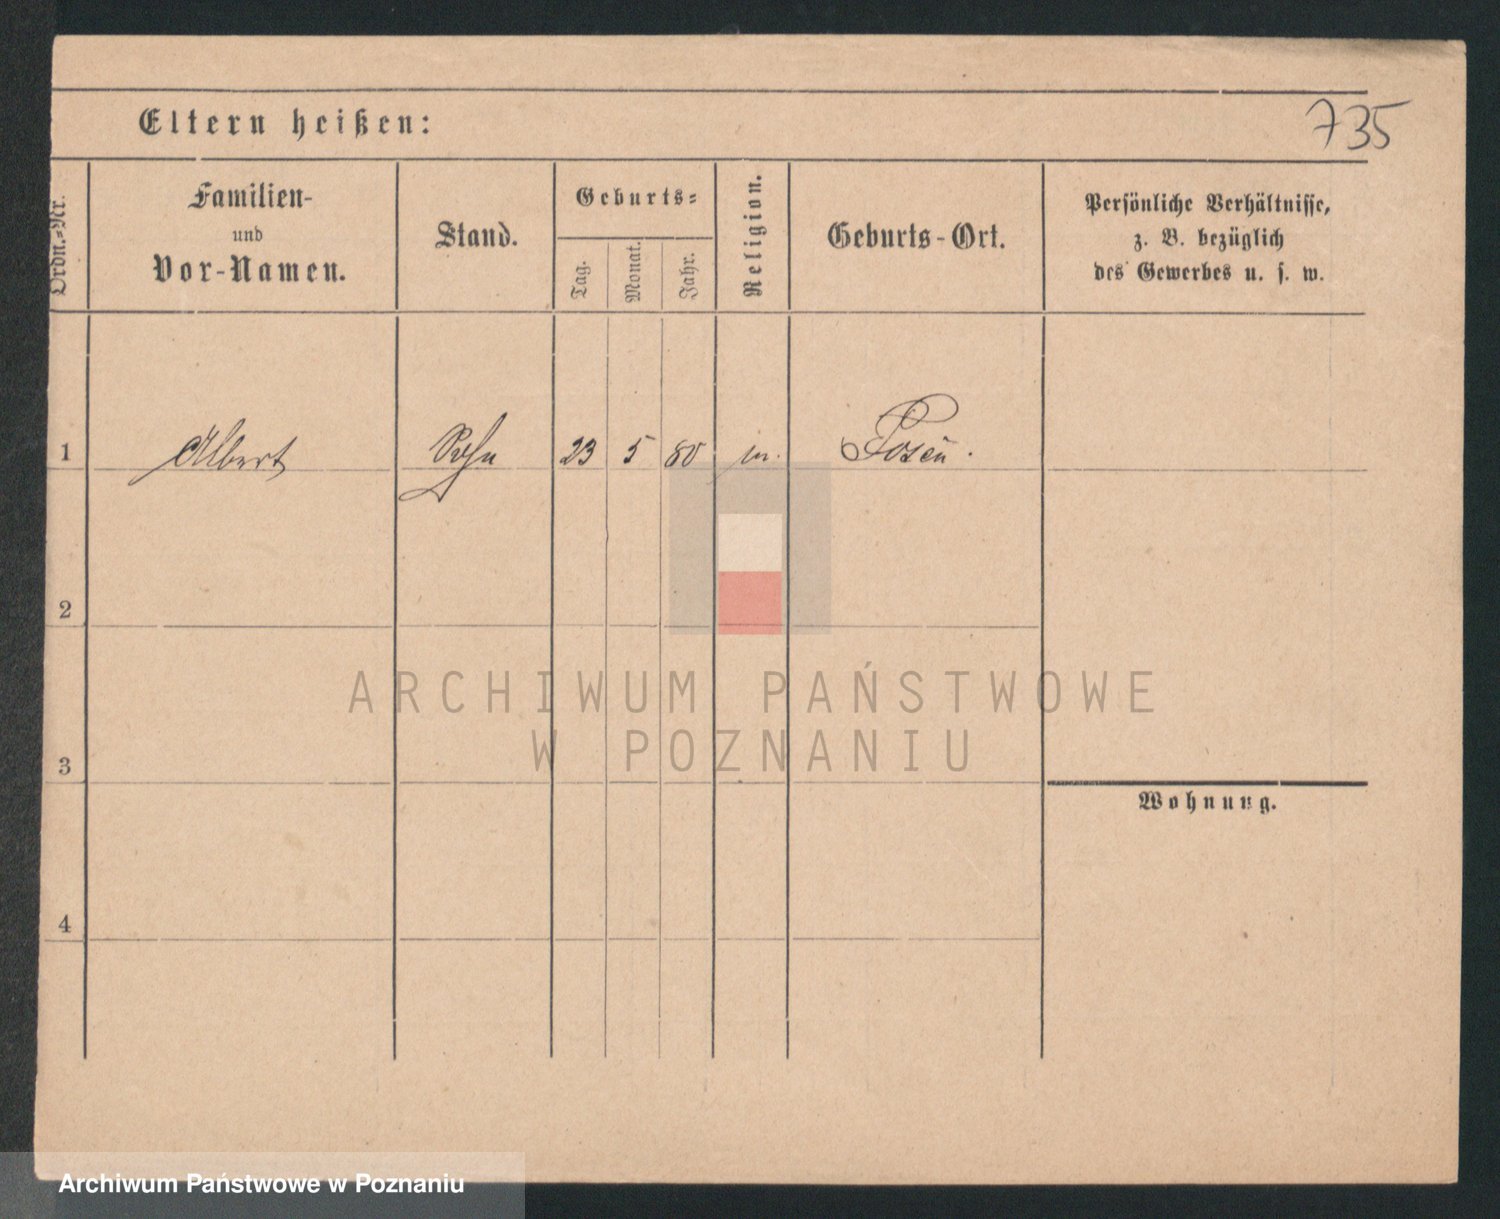 Eltern heißen:
735
Ordn.=Nr.
Familien-
und
Vor-Namen.
Stand.
Geburts=
Tag.
Monat.
Jahr.
Religion.
Geburts-Ort.
Persönliche Verhältnisse,
z. B. bezüglich
des Gewerbes u. s. w.
1 Albert Sohn 23 5 80 Posen.
2
3
4
Wohnung.
ARCHIWUM PAŃSTWOWE
W POZNANIU
Archiwum Państwowe w Poznaniu